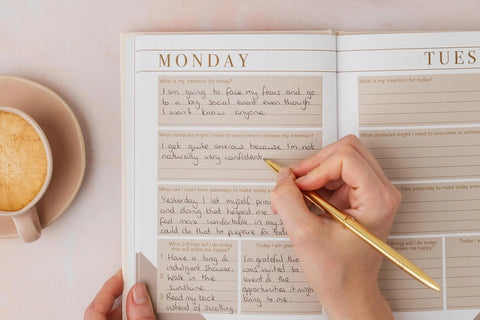 MONDAY
What is my intention for today?
I am going to face my fears and go
to a big social event even though
I wont know anyone.
What obstacles might I need to overcome to achieve my intention?
I get quite anxious because I'm not
naturally very confident.
What can I learn from yesterday to make today
Yesterday I let myself
and doing that helped me
feel more comfortable in my
could do that to prepare for
What 3 things will I do today
that will make me happy?
1 Have a long &
indulgent shower.
2 Walk in the
sunshine
3 Read my book
instead of scrolling
Today I am
I'm grateful tha
was invited to
event & the
opportunities it might
bring to me.
TUES
What is my intention for today?
What obstacles might I need to overcome to achieve my intention?
from yesterday to make today even
things will I do today
make me happy?
Today I